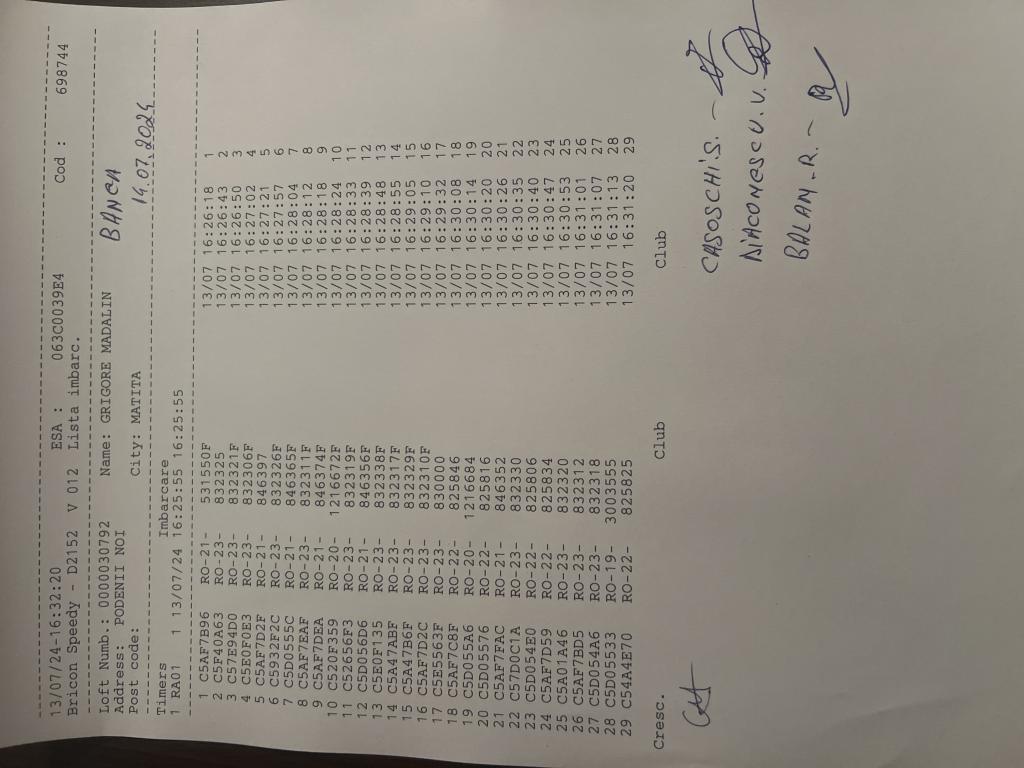 13/07/24-16:32:20 ESA : 063C0039E4 Cod : 698744
Bricon Speedy - D2152 V 012 Lista imbarc.
Loft Numb.: 0000030792 Name: GRIGORE MADALIN BANCA
Address: PODENII NOI
Post code: City: MATITA 14.07.2024
Timers Imbarcare
1 RA01 1 13/07/24 16:25:55 16:25:55
1 C5AF7B96 RO-21- 531550F 13/07 16:26:18 1
2 C5F40A63 RO-23- 832325 13/07 16:26:43 2
3 C57E94D0 RO-23- 832321F 13/07 16:26:50 3
4 C5E0F0E3 RO-23- 832306F 13/07 16:27:02 4
5 C5AF7D2F RO-21- 846397 13/07 16:27:21 5
6 C5932F2C RO-23- 832326F 13/07 16:27:57 6
7 C5D0555C RO-21- 846365F 13/07 16:28:04 7
8 C5AF7EAF RO-23- 832311F 13/07 16:28:12 8
9 C5AF7DEA RO-21- 846374F 13/07 16:28:18 9
10 C520F359 RO-20- 1216672F 13/07 16:28:24 10
11 C52656F3 RO-23- 832319F 13/07 16:28:33 11
12 C5D056D6 RO-21- 846356F 13/07 16:28:39 12
13 C5E0F135 RO-23- 832338F 13/07 16:28:48 13
14 C5A47ABF RO-23- 832317F 13/07 16:28:55 14
15 C5A47B6F RO-23- 832329F 13/07 16:29:05 15
16 C5AF7D2C RO-23- 832310F 13/07 16:29:10 16
17 C5E5563F RO-23- 830000 13/07 16:29:32 17
18 C5AF7C8F RO-22- 825846 13/07 16:30:08 18
19 C5D055A6 RO-20- 1216684 13/07 16:30:14 19
20 C5D05576 RO-22- 825816 13/07 16:30:20 20
21 C5AF7FAC RO-21- 846352 13/07 16:30:26 21
22 C57D0C1A RO-23- 832330 13/07 16:30:35 22
23 C5D054E0 RO-22- 825806 13/07 16:30:40 23
24 C5AF7D59 RO-22- 825834 13/07 16:30:47 24
25 C5A01A46 RO-23- 832320 13/07 16:30:53 25
26 C5AF7BD5 RO-23- 832312 13/07 16:31:01 26
27 C5D054A6 RO-23- 832318 13/07 16:31:07 27
28 C5D05533 RO-19- 3003555 13/07 16:31:13 28
29 C54A4E70 RO-22- 825825 13/07 16:31:20 29
Cresc. Club Club
CASOSCHI S. -
DIACONESCU V. -
BALAN R. -